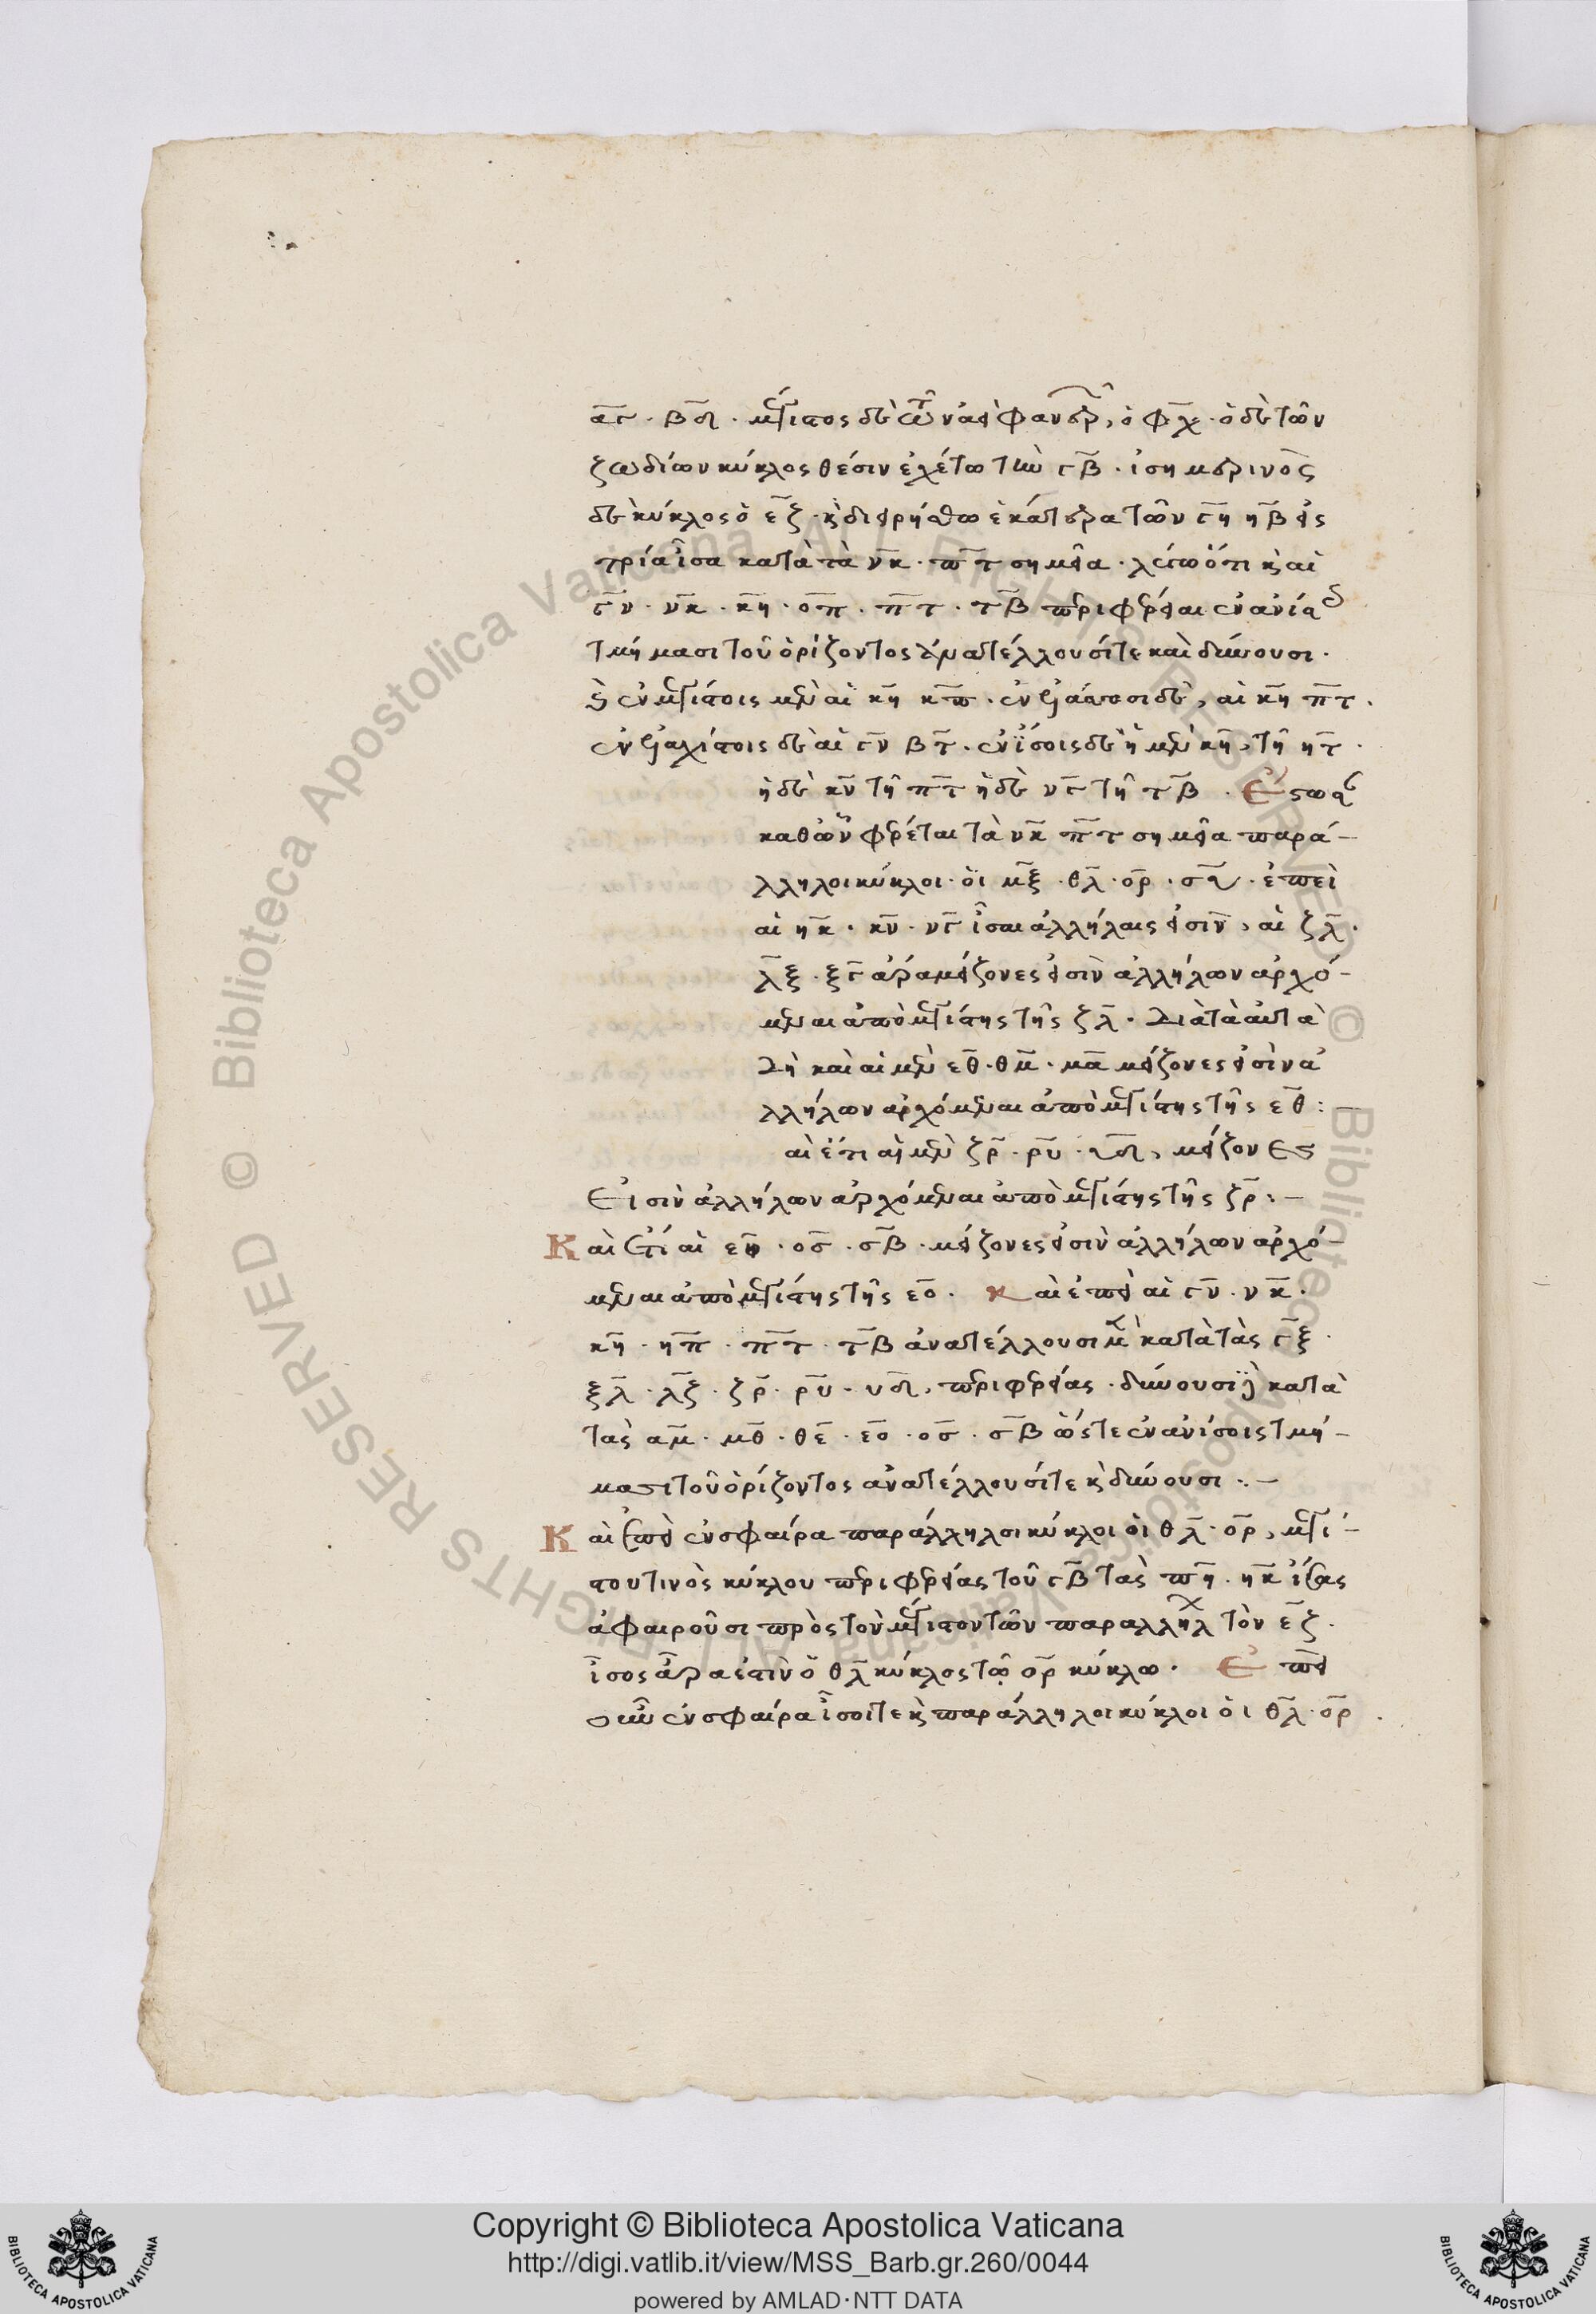 ᾱγ̄ · β̄δ̄ · μέγιστος δὲ τῶν ἀεὶ φανερῶν, ὁ φ̄χ̄ · ὁ δὲ τῶν
ζωδίων κύκλος θέσιν ἐχέτω τὴν γ̄β̄ · ἰσημερινὸς
δὲ κύκλος ὁ ε̄ζ̄ · κ̀ διῃρήσθω ἑκατέρα τῶν γ̄η̄ η̄β̄ εἰς
τρία ἴσα κατὰ τὰ ν̄κ̄ · π̄τ̄ σημεῖα · λέγω ὅτι κ̀ αἱ
γ̄ν̄ · ν̄κ̄ · κ̄η̄ · ο̄π̄ · π̄τ̄ · τ̄β̄ περιφέρειαι ἐν ἀνίσοις
τμήμασι τοῦ ὁρίζοντος ἀνατέλλουσί τε καὶ δύνουσι ·
κ̀ ἐν μεγίστοις μὲν αἱ κ̄η̄ κ̄π̄ · ἐν ἐλάσσοσι δὲ, αἱ κ̄η̄ π̄τ̄ ·
ἐν ἐλαχίστοις δὲ αἱ γ̄ν̄ β̄τ̄ · ἐν ἴσοις δὲ ἡ μὲν κ̄η̄, τῇ η̄τ̄ ·
ἡ δὲ κ̄ν̄ τῇ π̄τ̄ ἡ δὲ ν̄γ̄ τῇ τ̄β̄ · Ἔστωσαν
καθ' ὧν φέρεται τὰ ν̄κ̄ π̄τ̄ σημεῖα παρά-
λληλοι κύκλοι · οἱ μ̄ξ̄ · θ̄λ̄ · ο̄ρ̄ · σ̄ῡ · ἐπεὶ
αἱ η̄κ̄ · κ̄ν̄ · ν̄γ̄ ἴσαι ἀλλήλαις εἰσίν, αἱ ζ̄λ̄ ·
λ̄ξ̄ · ξ̄γ̄ ἄρα μείζονες εἰσὶν ἀλλήλων ἀρχό-
μεναι ἀπὸ μεγίστης τῆς ζ̄λ̄ · Διὰ τὰ αὐτὰ
δὴ καὶ αἱ μὲν ε̄θ̄ · θ̄μ̄ · μ̄ᾱ μείζονες εἰσὶν ἀ
λλήλων ἀρχόμεναι ἀπὸ μεγίστης τῆς ε̄θ̄ : –
αὶ ἔτι αἱ μὲν ζ̄ρ̄ · ρ̄ῡ · ῡδ̄, μείζονες
Εἰσὶν ἀλλήλων ἀρχόμεναι ἀπὸ μεγίστης τῆς ζ̄ρ̄ : –
Καὶ ἔτι αἱ ε̄ο̄ · ο̄σ̄ · σ̄β̄ · μείζονες εἰσὶν ἀλλήλων ἀρχό-
μεναι ἀπὸ μεγίστης τῆς ε̄ο̄ · Καὶ ἐπεὶ αἱ γ̄ν̄ · ν̄κ̄ ·
κ̄η̄ · η̄π̄ · π̄τ̄ · τ̄β̄ ἀνατέλλουσι μὲν κατὰ τὰς γ̄ξ̄ ·
ξ̄λ̄ · λ̄ζ̄ · ζ̄ρ̄ · ρ̄ῡ · ῡδ̄, περιφερείας · δύνουσι δὲ κατὰ
τὰς ᾱμ̄ · μ̄θ̄ · θ̄ε̄ · ε̄ο̄ · ο̄σ̄ · σ̄β̄ ὥστε ἐν ἀνίσοις τμή-
μασι τοῦ ὁρίζοντος ἀνατέλλουσί τε κ̀ δύνουσι :. –
Καὶ ἐπεὶ ἐν σφαίρα παράλληλοι κύκλοι οἱ θ̄λ̄ · ο̄ρ̄, μεγί-
στου τινὸς κύκλου περιφερείας τοῦ γ̄β̄ τὰς π̄η̄ · η̄κ̄ ἴσας
ἀφαιροῦσι πρὸς τὸν μέγιστον τῶν παραλλήλων τὸν ε̄ζ̄ ·
ἴσος ἄρα ἐστὶν ὁ θ̄λ̄ κύκλος τῷ ο̄ρ̄ κύκλω · Ἐπεὶ
οὖν ἐν σφαίρα ἴσοι τε κ̀ παράλληλοι κύκλοι οἱ θ̄λ̄ · ο̄ρ̄ ·
Copyright © Biblioteca Apostolica Vaticana
http://digi.vatlib.it/view/MSS_Barb.gr.260/0044
powered by AMLAD·NTT DATA